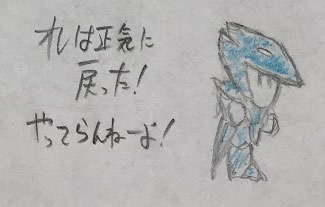 オレは正気に
戻った!
やってらんねーよ!